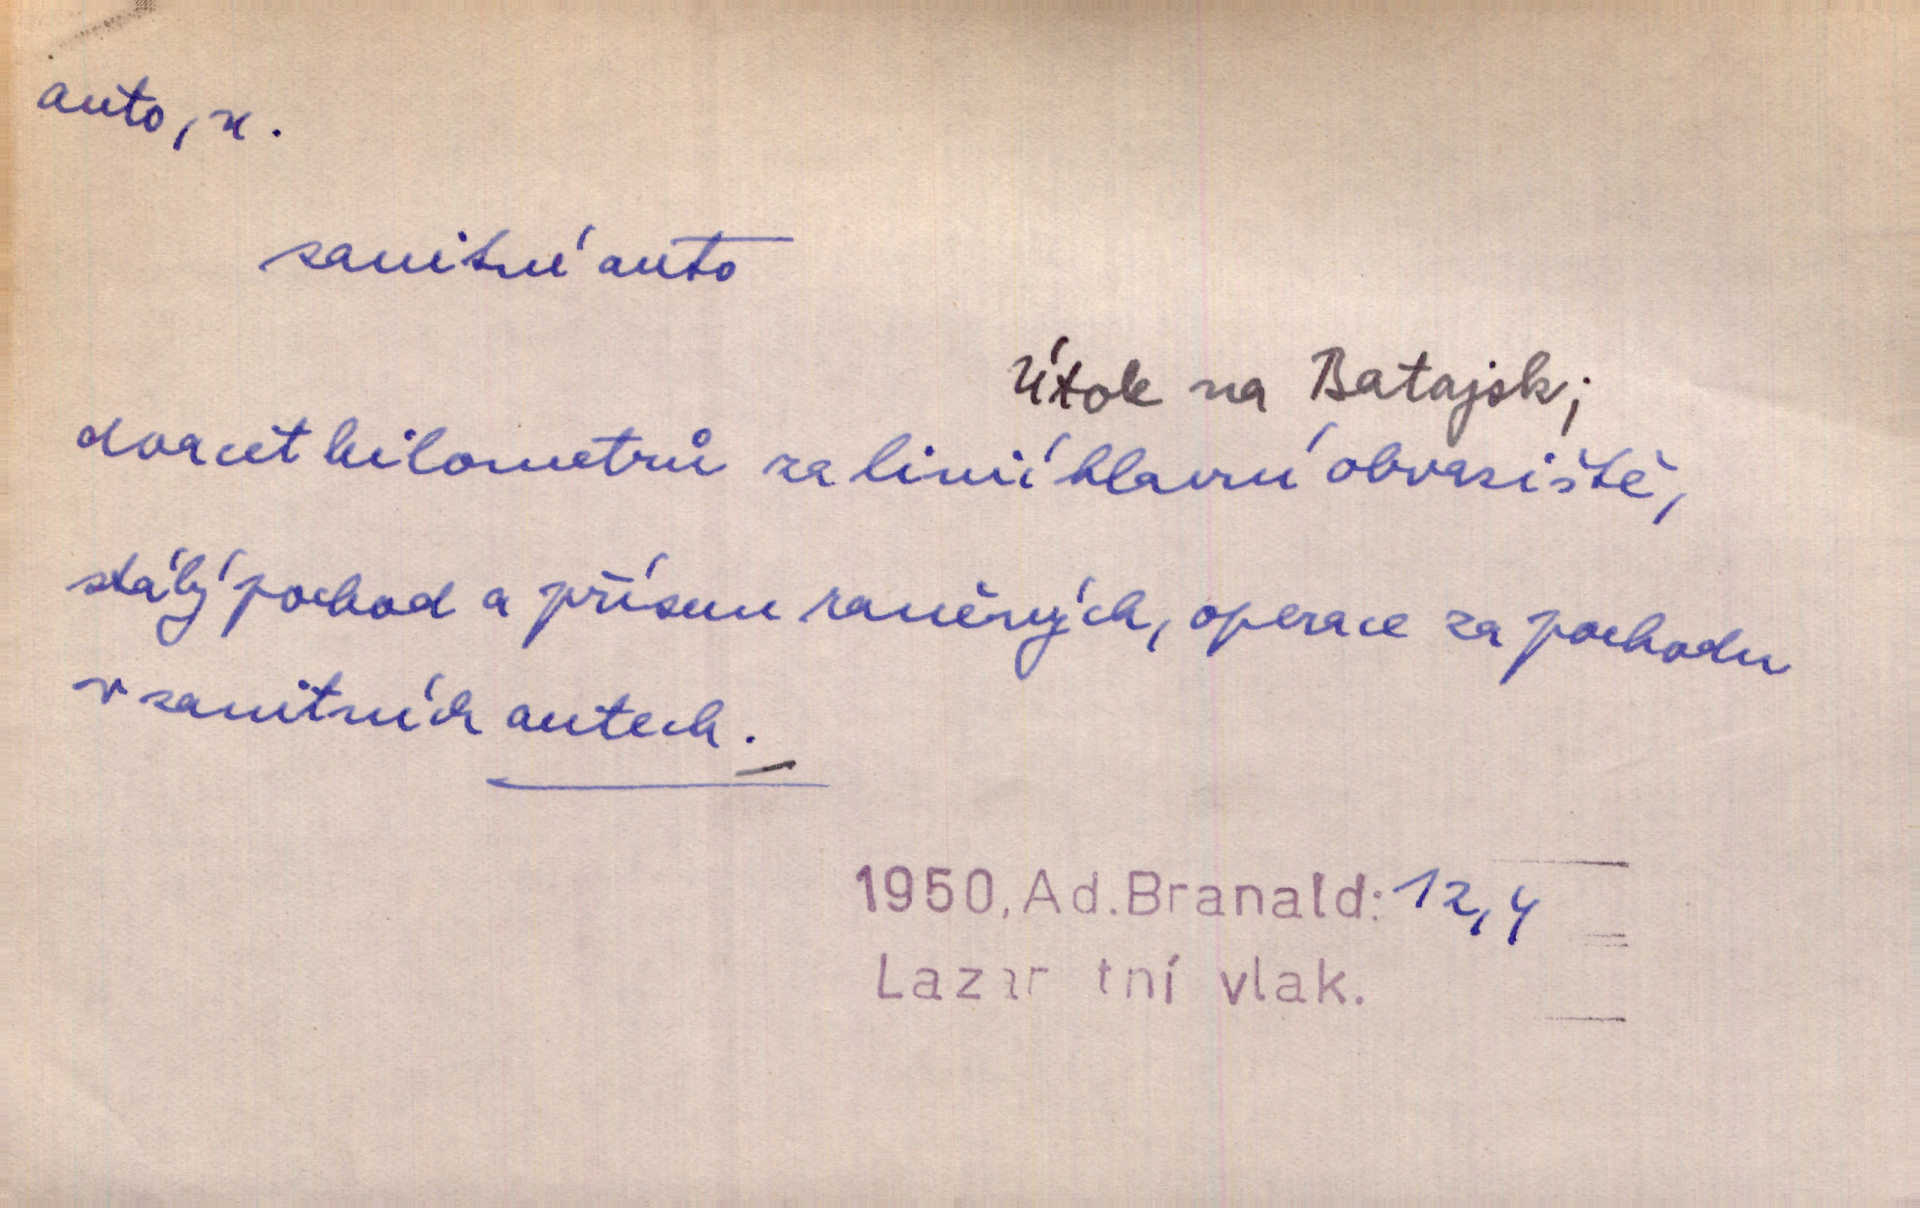 auto, n.
sanitní auto
Útok na Batajsk;
dvacet kilometrů za linií hlavní obvaziště,
stálý pochod a přísun raněných, operace za pochodu
v sanitních autech.
1950, Ad. Branald: 12,4
Lazar tní vlak.